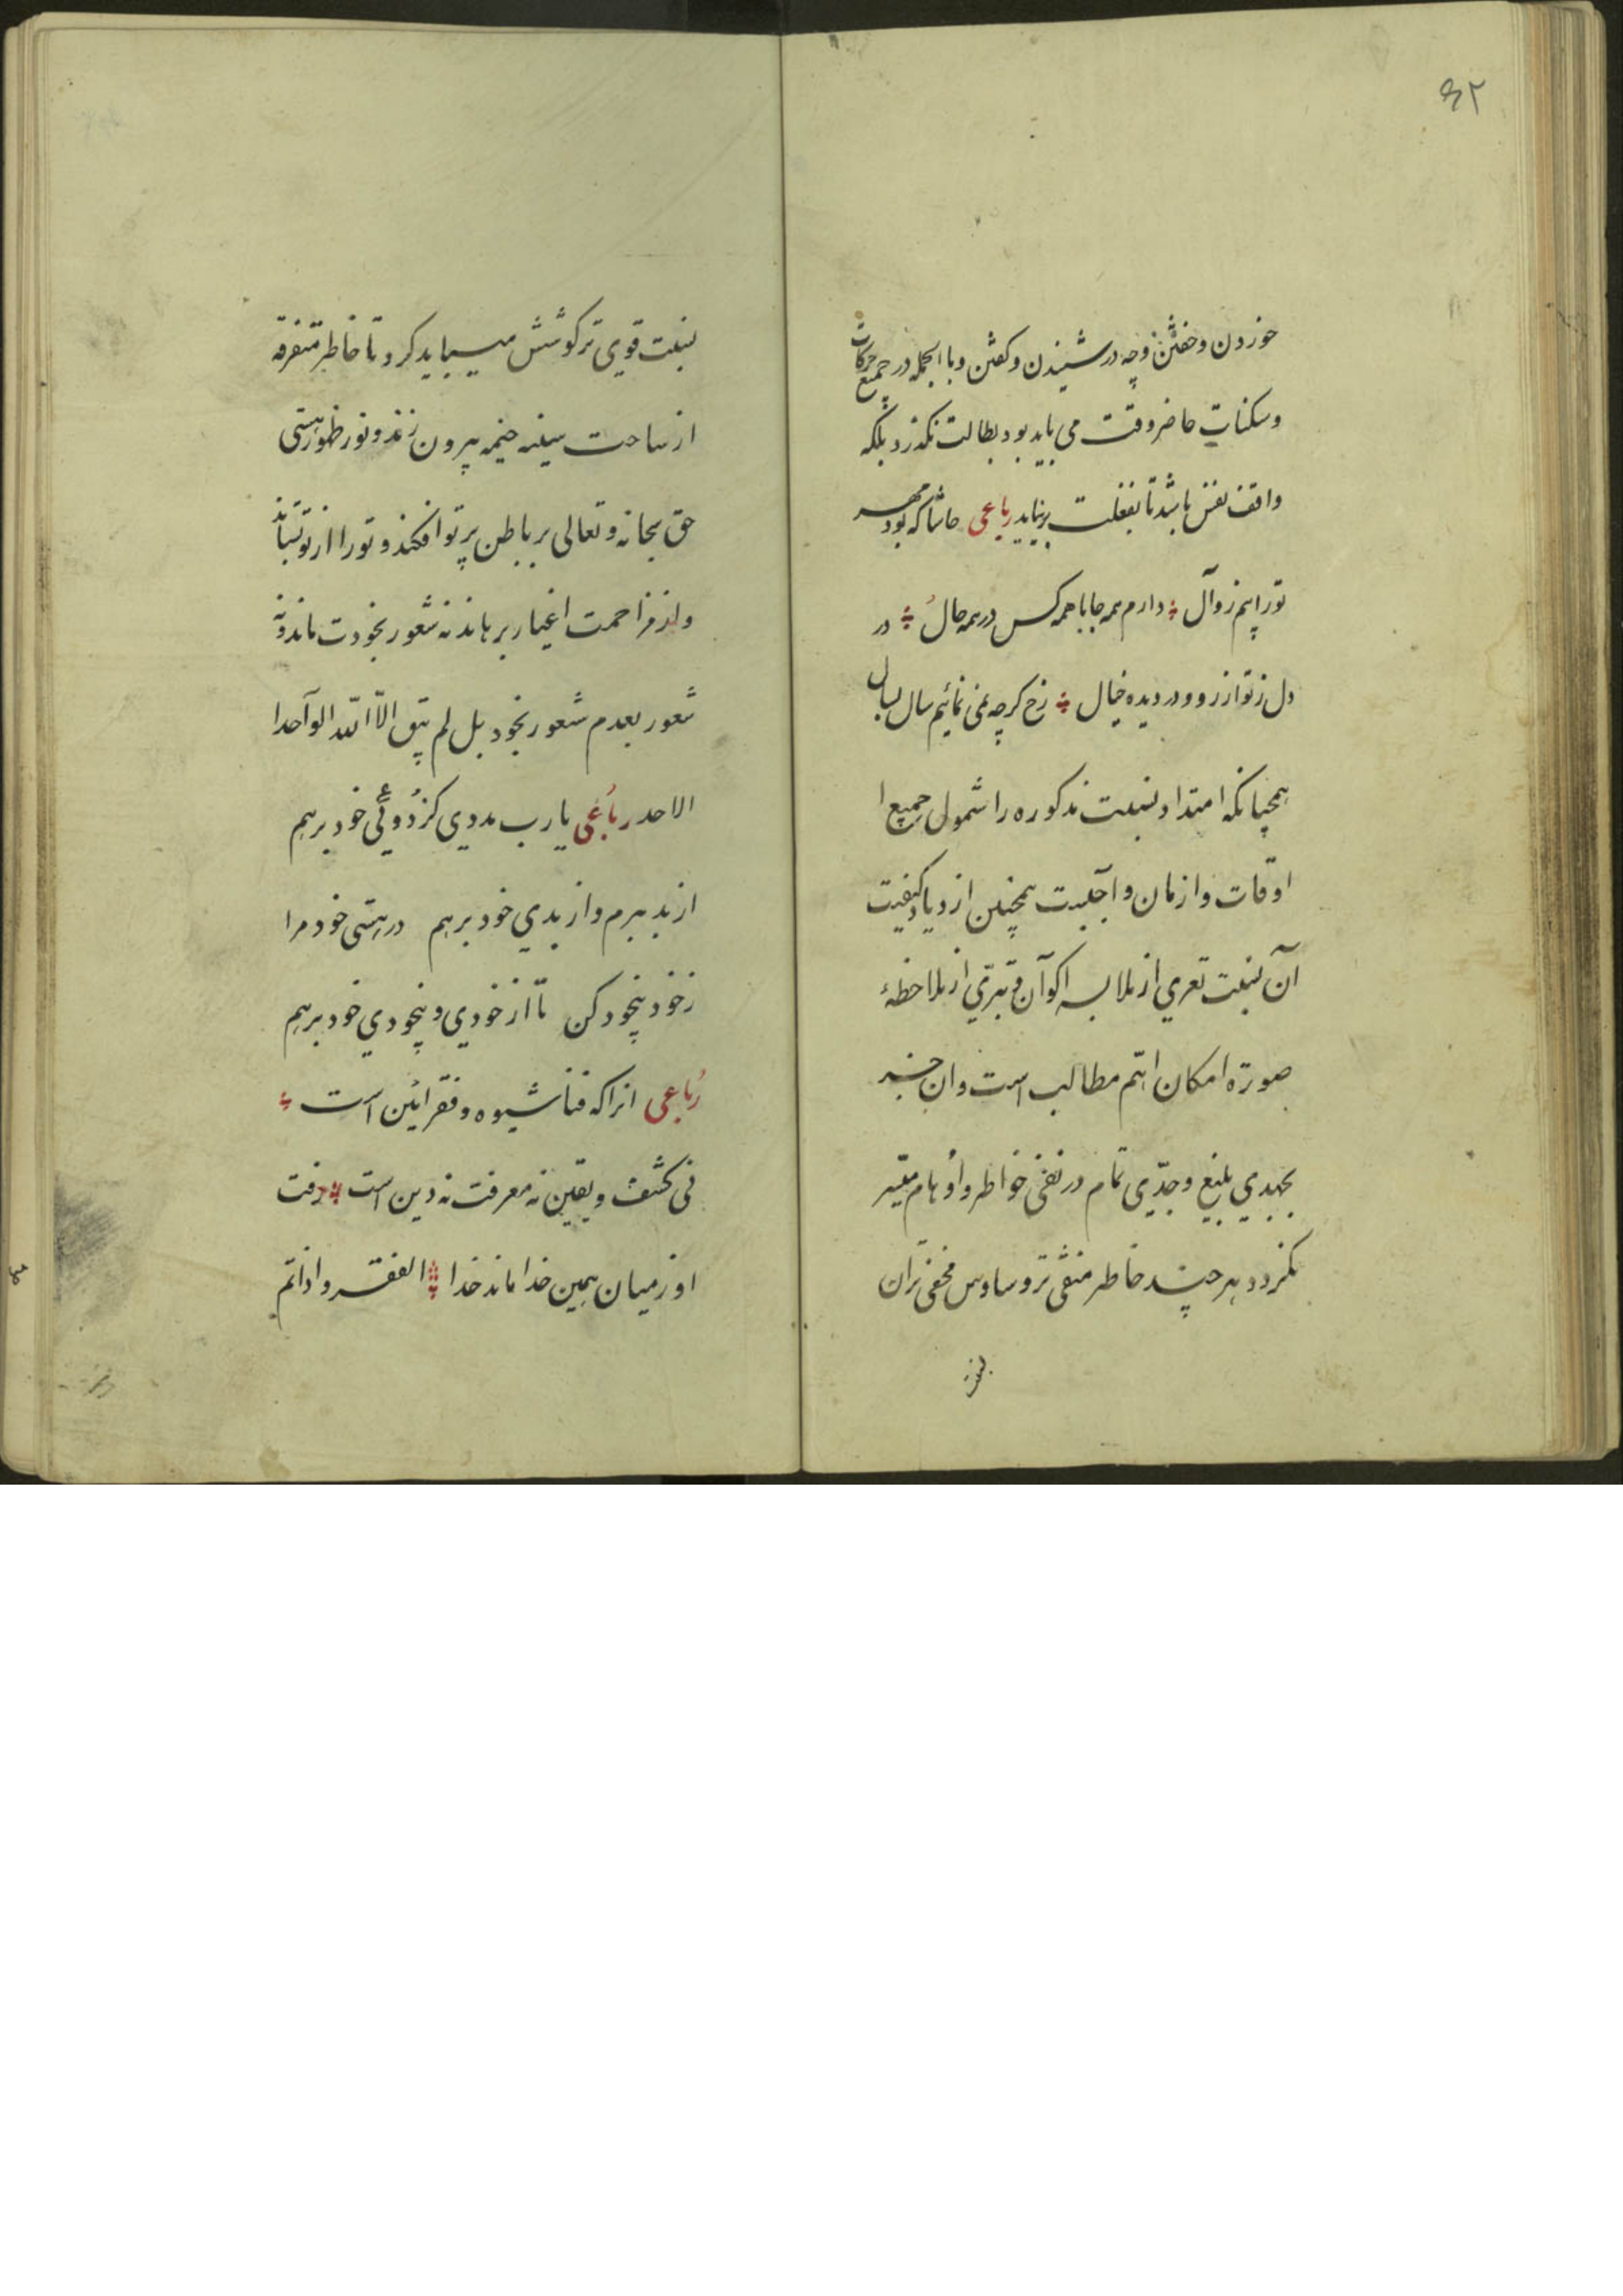 ۴۲
خوردن وخفتن وچه درشنیدن وکفتن وبا الجمله در جمیع حرکات
وسکنات حاضر وقت می باید بود بطالت نکذرد بلکه
واقف نفس باشد تا بغفلت برنیاید رباعی حاشا که بود مهر
تورا پیم زوآل دارم همه جا با همه کس در همه حال در
دل ز تو ارزو ودر دیده خیال رخ کرچه نمی نمائیم سال بسال
همچنانکه امتداد نسبت مذکوره را شمول جمیع ا
اوقات وازمان واجبست همچنین ازدیاد کیفیت
آن نسبت تعری از ملابسه اکوآن وتبرّی از ملاحظهٔ
صورة امکان اهّم مطالب است وان جز
بجهدی بلیغ وجدّی تمام در نفی خواطر واوهام میّسر
نکردد هر چند خاطر منفی تر وساوس مخفی تر آن
نسبت قوی تر کوشش میباید کرد تا خاطر متفرقه
از ساحت سینه خیمه بیرون زند ونور ظهور هستی
حق سبحانه وتعالی بر باطن پرتو افکند وتورا از تو بستاند
واز مزاحمت اغیار برهاند نه شعور بخودت ماند ونه
شعور بعدم شعور بخود بل لم یبق الّا الله الوآحد ا
الاحد رباعی یا رب مددی کز دوئی خود برهم
از بد ببرم واز بدی خود برهم در هستی خود مرا
ز خود بیخود کن تا از خودی وبیخودی خود برهم
رباعی انرا که فنا شیوه وفقر ائین است
نی کشف ویقین نه معرفت نه دین است رفت
او ز میان همین خدا ماند خدا الفقر واذا تم